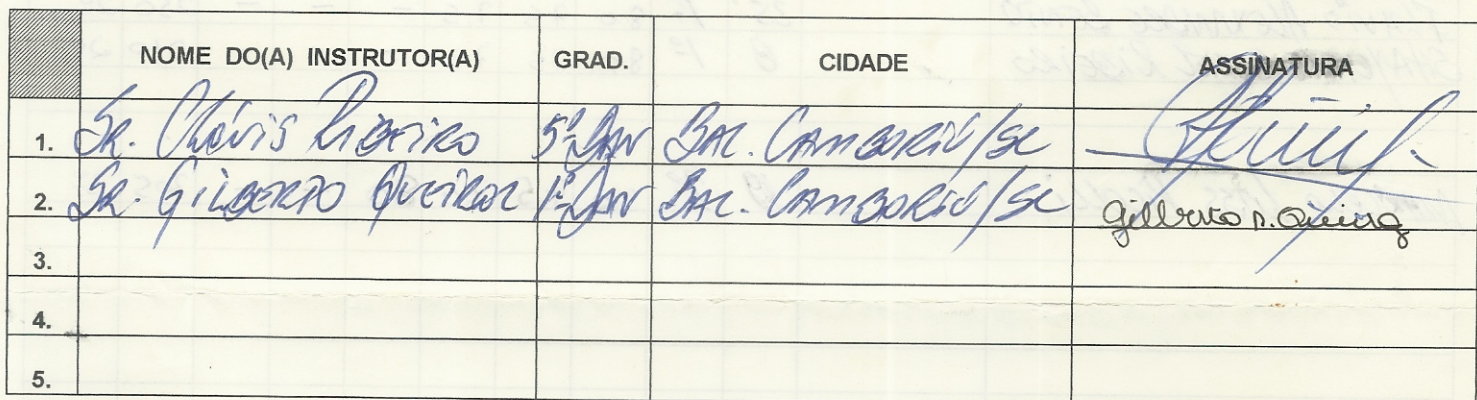 NOME DO(A) INSTRUTOR(A) GRAD. CIDADE ASSINATURA
1. Sr. Clóvis Ribeiro 5º Dan Bal. Camboriú/SC
2. Sr. Gilberto Queiroz 1º Dan Bal. Camboriú/SC Gilberto n. Queiroz
3.
4.
5.